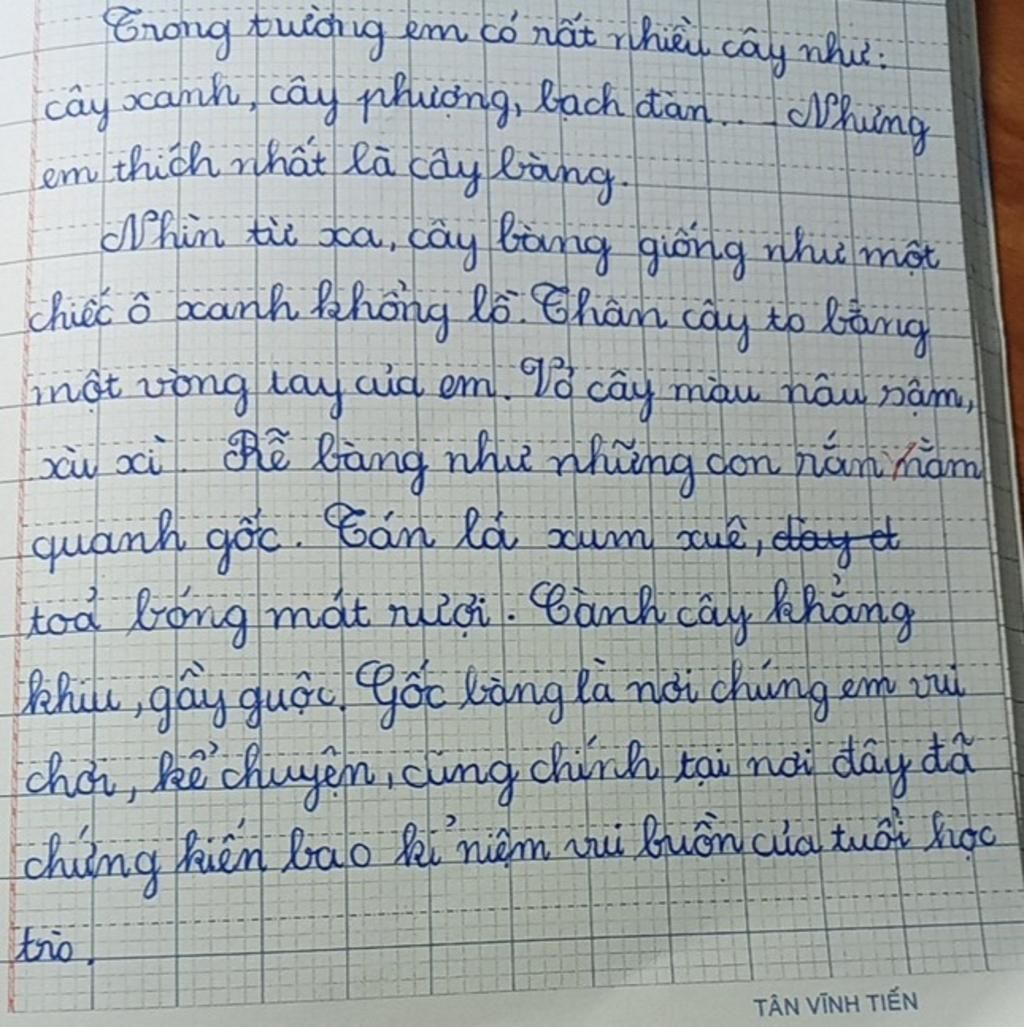 Trong trường em có rất nhiều cây như:
cây xanh, cây phượng, bạch đàn... Nhưng
em thích nhất là cây bàng.
Nhìn từ xa, cây bàng giống như một
chiếc ô xanh khổng lồ. Thân cây to bằng
một vòng tay của em. Vỏ cây màu nâu nậm,
xù xì. Rễ bàng như những con rắn nằm
quanh gốc. Tán lá xum xuê, dày d
toả bóng mát rượi. Cành cây khẳng
khiu, gầy guộc. Gốc bàng là nơi chúng em vui
chơi, kể chuyện, cũng chính tại nơi đây đã
chứng kiến bao kỉ niệm vui buồn của tuổi học
trò.
TÂN VĨNH TIẾN